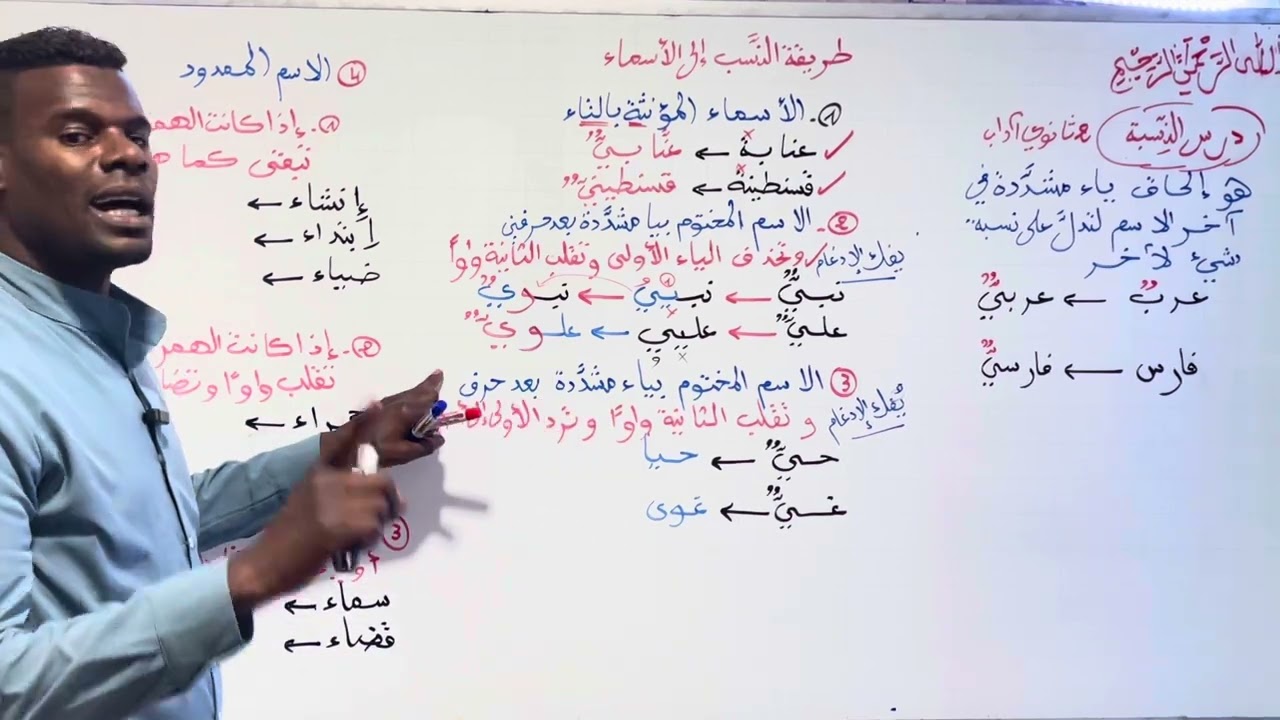 الله الرحمن الرحيم
درس النسبة 2 ثانوي آداب
هو إلحاق ياء مشدَّدة في
آخر الاسم لتدلَّ على نسبة
شيء لآخر
عربٌ ← عربيٌّ
فارس ← فارسيٌّ
طريقة النَّسب إلى الأسماء
1.- الأسماء المؤنثة بالتاء
✓ عنابة ← عنَّابيٌّ
✓ قسنطينة ← قسنطينيٌّ
2.- الاسم المختوم بيا مشدَّدة بعد حرفين
يفك الإدغام وتحذف الياء الأولى وتقلب الثانية واوًا
نبيٌّ ← نبييٌ ← نبويٌّ
عليٌّ ← علييٌ ← علويٌّ
3 الاسم المختوم بياء مشدَّدة بعد حرف
يُفك الإدغام و تقلب الثانية واوًا وترد الأولى
حيٌّ ← حيا
غيٌّ ← غوى
4 الاسم الممدود
1.- إذا كانت الهمز
تبقى كما ه
إنشاء ←
إبتداء ←
ضياء ←
2.- إذا كانت الهمز
تقلب واوًا وتضا
راء ←
3
أو
سماء ←
قضاء ←